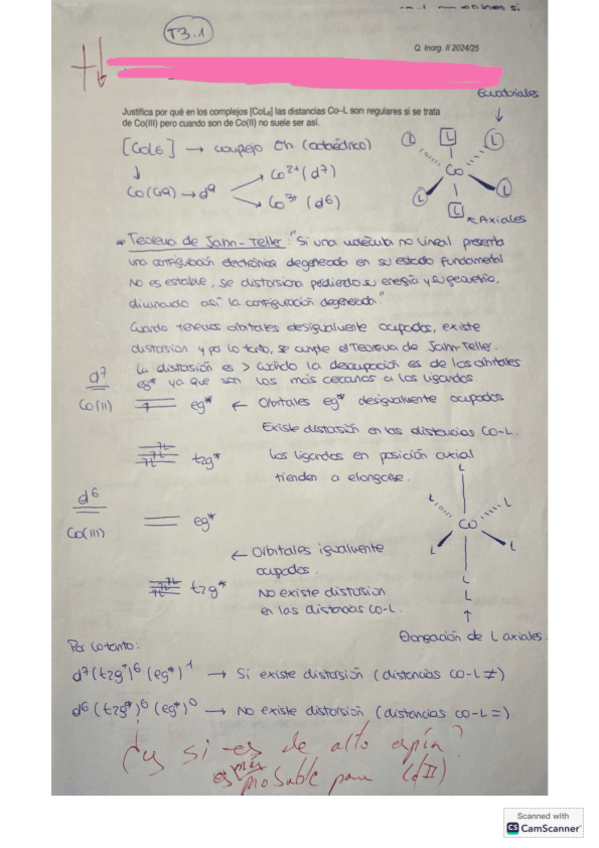 T3.1
Q. Inorg. II 2024/25
Justifica por qué en los complejos [CoL₆] las distancias Co–L son regulares si se trata
de Co(III) pero cuando son de Co(II) no suele ser así.
Ecuatoriales
[CoL6] → complejo Oh (octaédrico)
Co(G9) → d9
Co2+ (d7)
Co3+ (d6)
L L L
Co
L L
L
Axiales
Teorema de Jahn-Teller: "Si una molécula no lineal presenta
una configuración electrónica degenerada en su estado fundamental
No es estable, se distorsiona perdiendo su energía y su geometría,
eliminando así la configuración degenerada."
Cuando tenemos orbitales desigualmente ocupados, existe
distorsion y por lo tanto, se cumple el Teorema de Jahn-Teller.
La distorsión es > cuando la desocupación es de los orbitales
eg* ya que son los más cercanos a los ligandos.
d7
Co(II)
eg* ← Orbitales eg* desigualmente ocupados
Existe distorsión en las distancias Co-L.
t2g*
Los ligandos en posición axial
tienden a elongarse.
d6
Co(III)
eg*
← Orbitales igualmente
ocupados.
t2g*
No existe distorsion
en las distancias Co-L.
L
L L
Co
L L
L
L
Elongación de L axiales.
Por lo tanto:
d7 (t2g*)6 (eg*)1 → Si existe distorsión (distancias Co-L ≠)
d6 (t2g*)6 (eg*)0 → No existe distorsión (distancias Co-L =)
¿y si es de alto espín?
es más probable para Co(II)
Scanned with
CS CamScanner